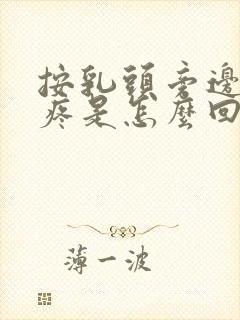 按乳頭旁邊
疼是怎麼回
薄一波